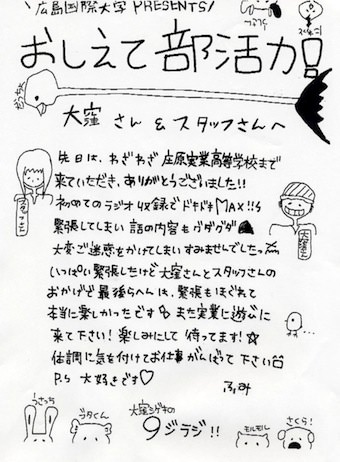 \ 広島国際大学 PRESENTS /
おしえて部活力!!
大窪さん & スタッフさんへ
先日は、わざわざ庄原実業高等学校まで
来ていただき、ありがとうございました!!
初めてのラジオ収録でドキドキMAX!!
緊張してしまい話の内容もグダグダ
大変ご迷惑をかけてしまいすみませんでしたっ
いっぱい緊張したけど大窪さんとスタッフさんの
おかげで最後らへんは、緊張もほぐれて
本当に楽しかったです また実業に遊びに
来て下さい! 楽しみにして待ってます!☆
体調に気を付けてお仕事がんばって下さい
P.S 大好きです♡ ふみ
スタッフさん
大窪さん
うさっち
ブタくん
大窪シゲキの
9ジラジ!!
モルモル
さくら!